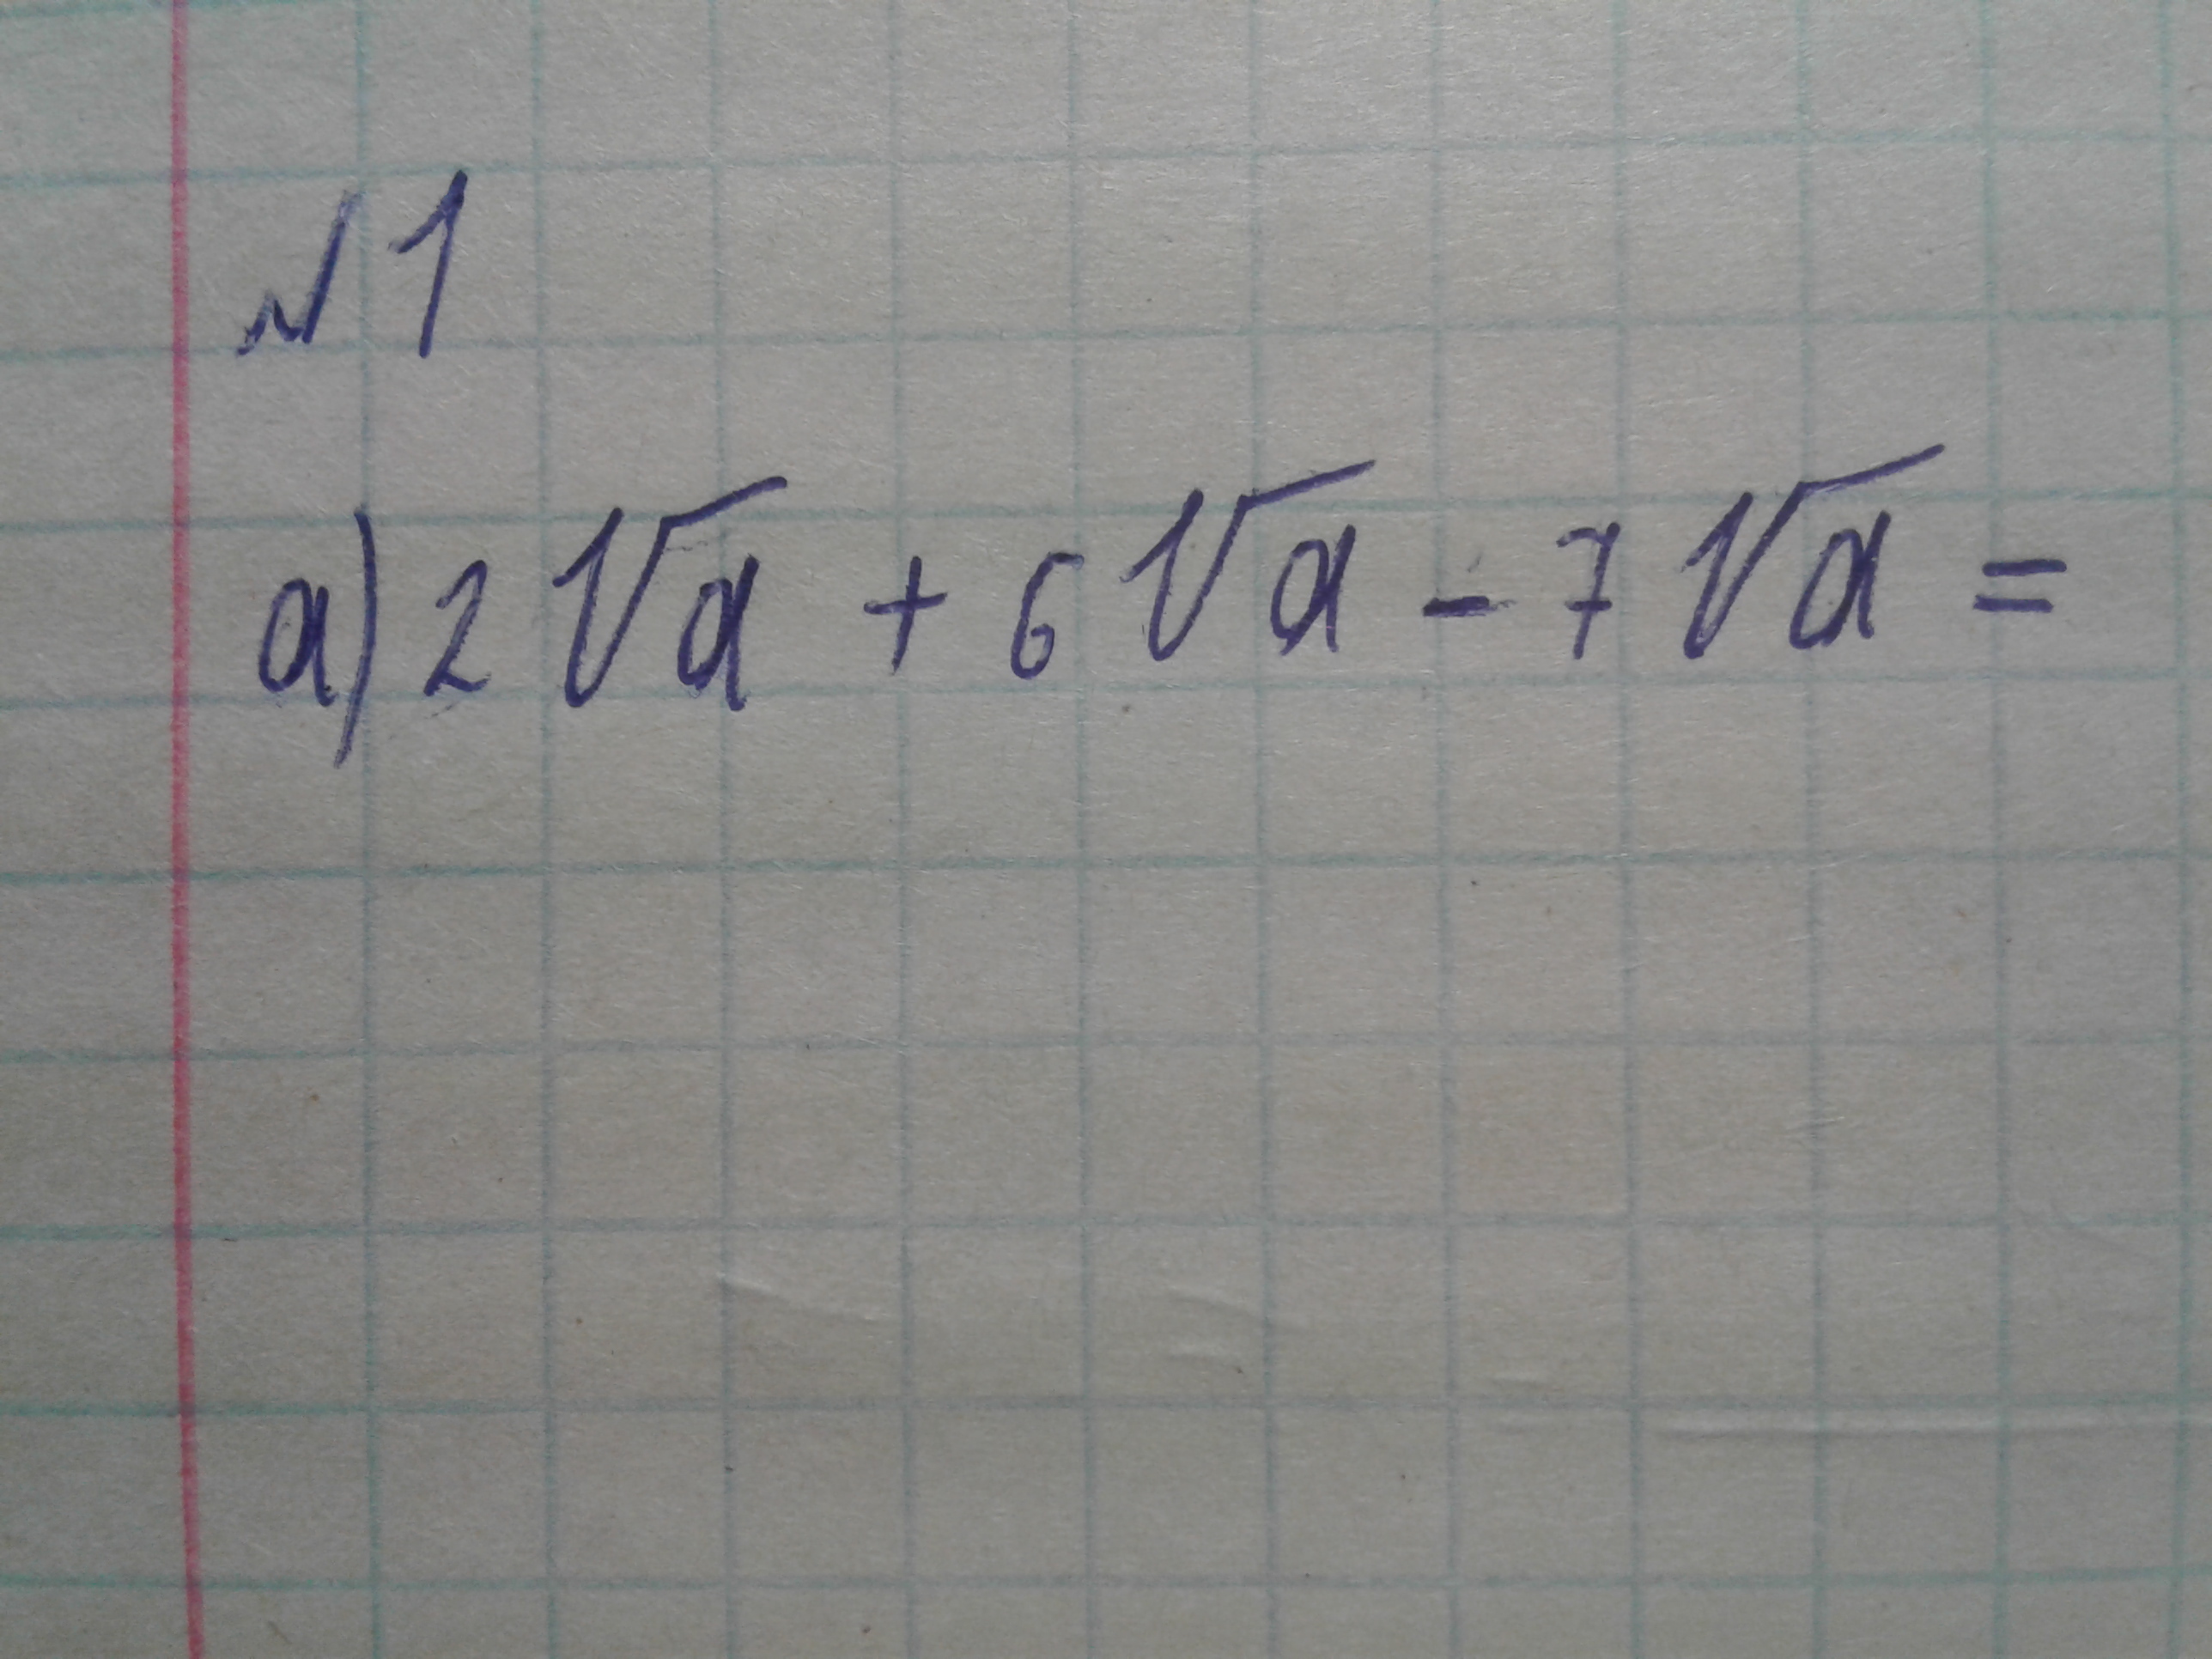 №1
а) 2√a + 6√a - 7√a =